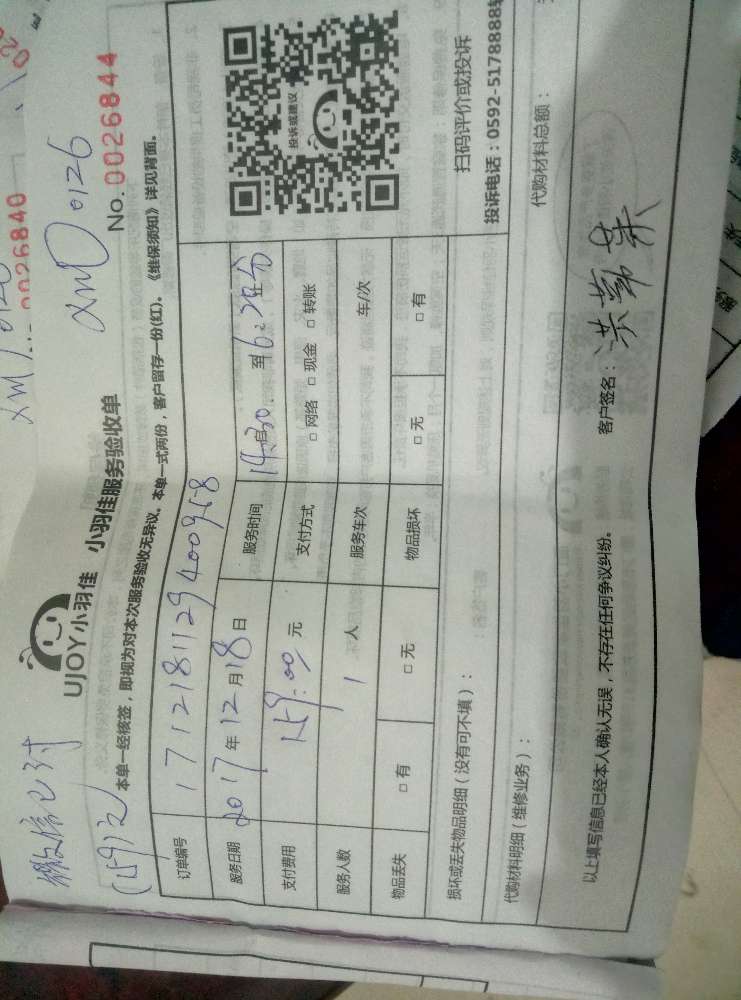 0026840
微信已付
159元
xmD0126
UJOY小羽佳 小羽佳服务验收单
No. 0026844
本单一经核签，即视为对本次服务验收无异议。本单一式两份，客户留存一份(红)。《维保须知》详见背面。
订单编号 1712181129400958
服务日期 2017年12月18日 服务时间 14:30自 至16:25分
支付费用 159.00元 支付方式 □网络 □现金 □转账
服务人数 1人 服务车次 车/次
物品丢失 □有 □无 物品损坏 □无 □有
投诉或建议
扫码评价或投诉
投诉电话：0592-5178888转
损坏或丢失物品明细（没有可不填）：
代购材料明细（维修业务）： 代购材料总额：
以上填写信息已经本人确认无误，不存在任何争议纠纷。 客户签名：洪